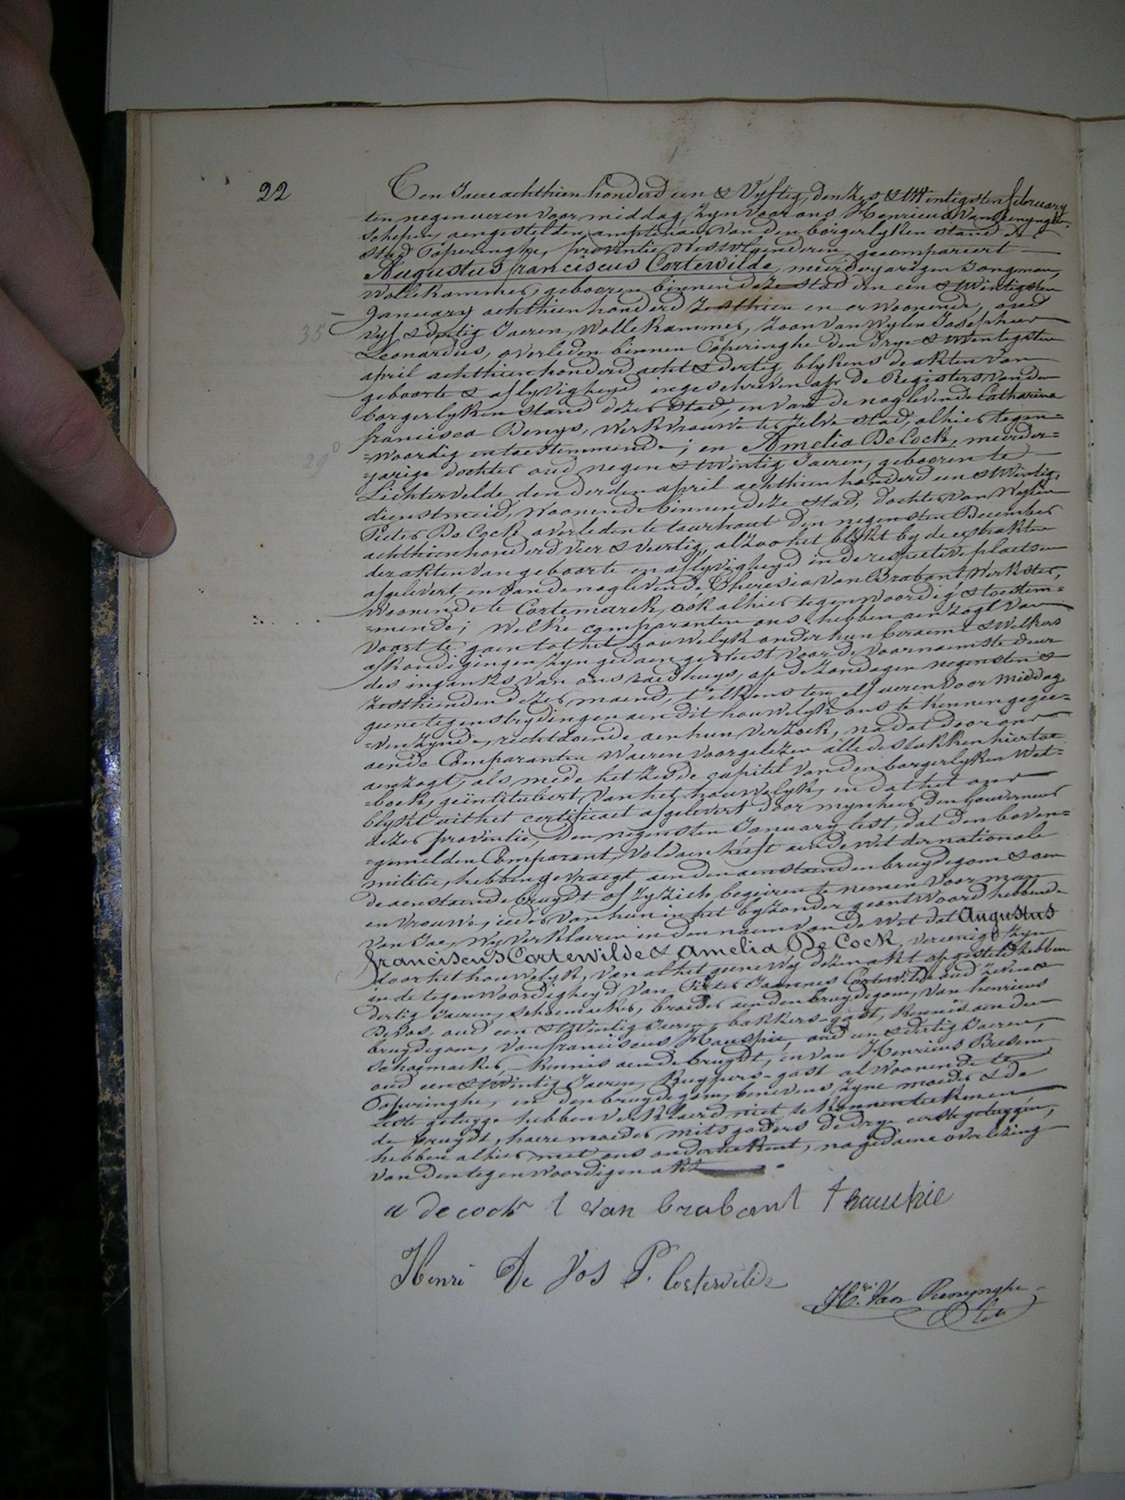 22
Ten Jaere achthien honderd een & Vyftig, den Zes & twintigsten february
ten negen ueren voor middag, zyn voor ons Henricus Van Renynghe
schepen, aengestelden amptenaer van den borgerlyken stand der
Stad Poperinghe, provintie Westvlaenderen, gecompareert
Augustus franciscus Cortewilde, meerderjarigen Jongman,
Wollekammer, geboren binnen deze stad den een & twintigsten
January achthien honderd zesthien en er Woonende, oud
35
vyf & dertig Jaeren, Wollekammer, zoon van Wylen Josephus
Leonardus, overleden binnen Poperinghe den dry & twintigsten
april achthien honderd acht & dertig, blykens de akten van
geboorte & aflyvigheyd ingeschreven op de Registers van den
borgerlyken stand dezer Stad, en van de naglevende Catharina
francisca Denys, Werkvrouwe ter zelve stad, alhier tegen=
29
=woordig en toestemmende; en Amelia De Cock, meerder=
jarige dochter oud negen & twintig Jaeren, geboren te
Lichtervelde den derden april achthien honderd een & twintig,
dienstmeid, Woonende binnen deze stad, dochter van Wylen
Pieter De Cock overleden te tourhout den negensten December
achthien honderd vier & veertig, alzoo het blykt by de extrakten
der akten van geboorte en aflyvigheyd in de respective plaetsen
afgelevert, en van de naglevende Theresia Van Brabant, Werkster,
Woonende te Cortemarck, ook alhier tegenwoordig & toestem=
=mende; Welke comparanten ons hebben aenzogt van
voort te gaen tot het houwelyk onder hun beraemt & Welkers
afkondigingen zyn gedaen geweest voor de voornaemste deur
des ingangs van ons stadhuys, op de zondagen negensten &
zesthienden dezer maend, t'elkens ten elf ueren voor middag
geene tegenstrydingen aen dit houwelyk ons te kennen gegee=
=ven zynde, rechtdoende aen hun verzoek, na dat door ons
aen de Comparanten Waeren voorgelezen alle de stukken hiertoe
aenzogt, als mede het zesde capitel van den borgerlyken Wet=
=boek, geïntituleert Van het houwelyk, en dat het ons
blykt uit het certificaet afgelevert door mynheer den Gouverneur
dezer provintie, den negensten January lest, dat den boven=
=gemelden Comparant, voldaen heeft aen de wet der nationale
militie, hebben gevraegt aen den aenstaenden bruydegom & aen
de aenstaende bruydt of zy zich begeiren te nemen voor man
en vrouwe, ieder van hun in het byzonder geantwoord hebbende
van Jae, Wy verklaeren in den naem van de Wet dat Augustus
franciscus Cortewilde & Amelia De Cock, vereenigt zyn
door het houwelyk, Van al het geene Wy dezen akt opgesteld hebben
in de tegenwoordigheyd van Pieter Joannes Cortewilde oud zeven &
dertig Jaeren, Schoenmaker, broeder aen den bruydegom, Van henricus
De Vos, oud een & twintig Jaeren, bakkers-gast, kennis aen den
bruydegom, Van franciscus Hauspie, oud een & dertig Jaeren,
Schoenmaker, kennis aen de bruydt, en van Henricus Beesem
oud een & twintig Jaeren, Kuypers-gast al Woonende te
Poperinghe, en den bruydegom, benevens zyne moeder & de
leste getuyge hebben verklaerd niet te konnen teekenen
de bruydt, haere moeder, mitsgaders de dry eerste getuygen,
hebben alhier met ons onderteekent, na gedaene overlezing
van den tegenwoordigen akt
a de cock t van brabant f hauspie
Henri De Vos P. Cortewilde
Hri Van Renynghe